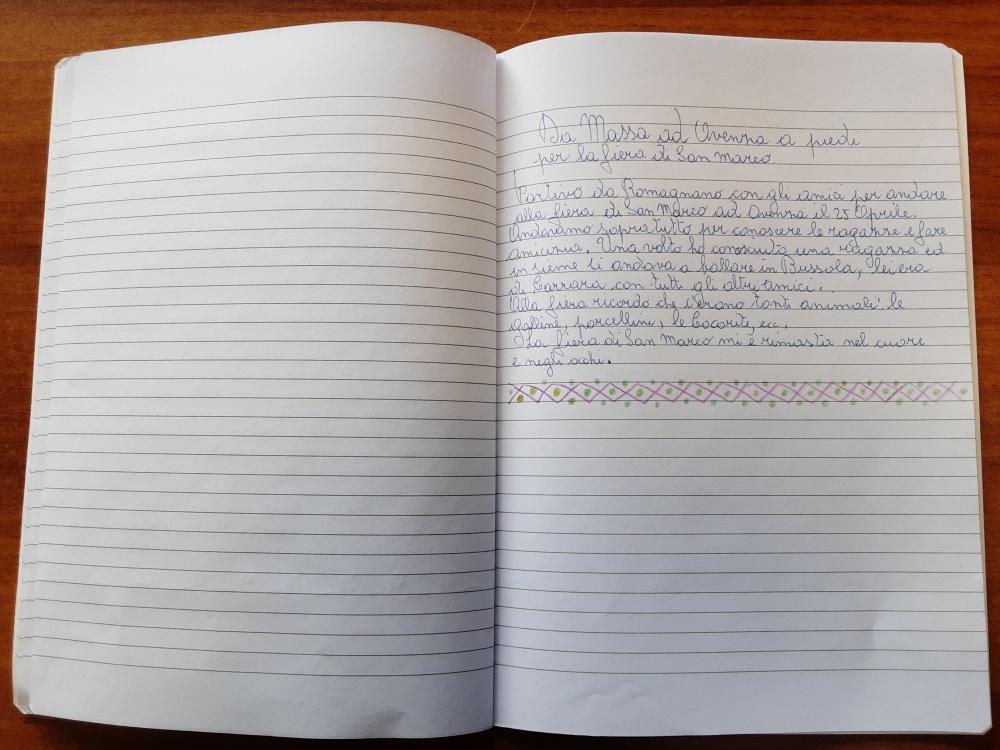 Da Massa ad Avenza a piedi
per la fiera di San Marco
Partivo da Romagnano con gli amici per andare
alla fiera di San Marco ad Avenza il 25 Aprile.
Andavamo sopratutto per conoscere le ragazze e fare
amicizia. Una volta ho conosciuto una ragazza ed
insieme si andava a ballare in Bussola, lei era
di Carrara con tutti gli altri amici.
Alla fiera ricordo che c'erano tanti animali: le
galline, porcellini, le Cocorite, ecc.
La fiera di San Marco mi è rimasta nel cuore
e negli occhi.